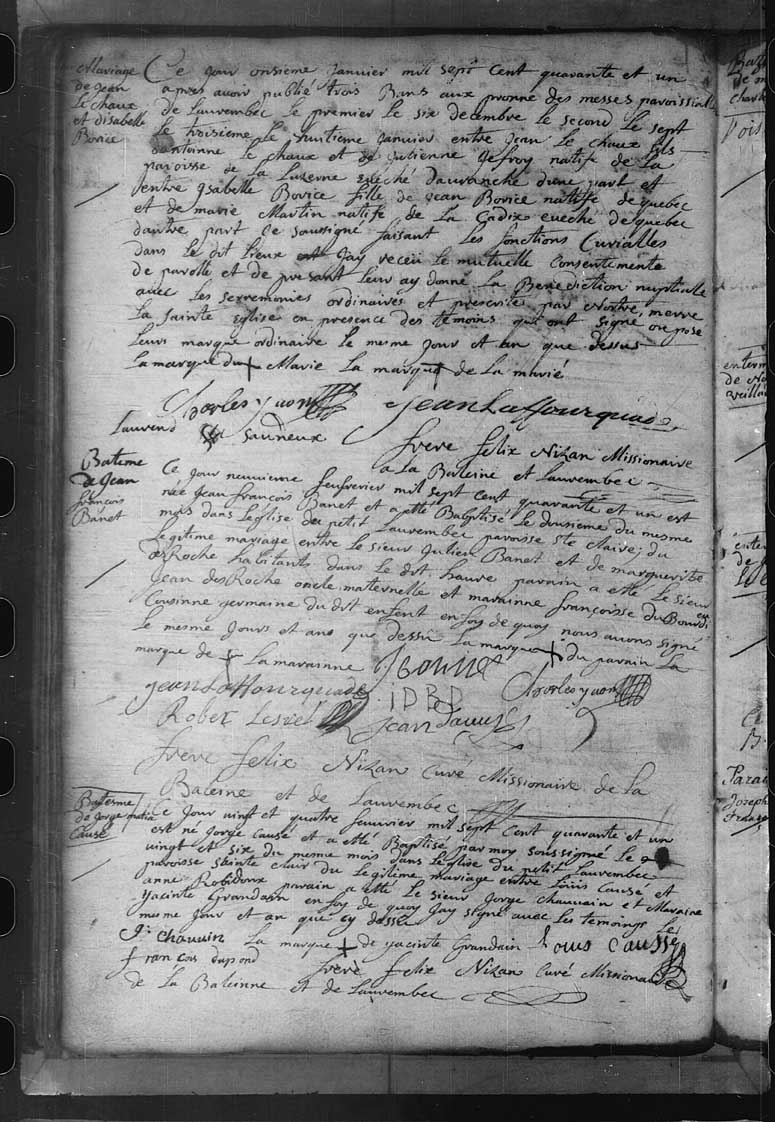 Mariage
de Jean
Le chaux
et disabelle
Borice
Ce jour onsieme Janvier mil sept Cent quarante et un
apres avoir publié trois Bans aux pronne des messes paroissial
de Lauvembec le premier le six decembre le second le sept
le troisieme le huitieme Janvier entre Jean Le chaux fils
dantoinne Le chaux et de Julienne Jefroy natife de La
paroisse de La Luzerne evêché dauvranche dune part et
entre Ysabelle Borice fille de Jean Borice natife de quebec
et de marie Martin natife de La Cadix eveche de quebec
dautre part Je soussigné faisant Les fonctions Curialles
dans le dit Lieux Jay receu le mutuelle Consentemente
de parolle et de presant Leur ay donné La Benediction nuptialle
avec Les serremonies ordinaires et prescrite par Nostre merre
La sainte Eglise en presence des temoins qui ont signé ou posé
Leurs marque ordinaire le mesme jour et an que dessus
La marque du + Marié La marque + de La marié
Charles yuon Jean Laffourquade
Laurend saudneux
frere felix Nizan Missionaire
a La Barleine et Lauvembec
Batême
de Jean
françois
Banet
Ce jour neuvieme feufvrier mil sept Cent quarante et un est
née Jean François Banet et a etté Babptisé le dousieme du mesme
mois dans Leglise du petit Lauvembec paroisse ste claire, du
Legitime mariage entre le sieur Julien Banet et de marguerite
desRoche habitants dans le dit havre parain a etté Le sieur
Jean desRoche oncle maternelle et marainne françoisse du Bourdi
Cousinne germaine du dit enfent en foy de quoy nous avons signé
le mesme Jours et ans que dessu La marque + du parain La
marque de + La marainne JBonne
Jean Laffourquade IDBD Charles yuon
Rober Lesiel Jean Dauy
frere felix Nizan Curé Missionaire de la
Baleine et de Lauvembec
Bateme
de Jorge
Causé
Ce Jour vingt et quatre Janvier mil sept Cent quarante et un
est né Jorge Causé et a etté Baptisé par moy soussigné le
vingt et six du mesme mois dans Leglise du petit Lauvembec
paroisse sainte clair du Legitime mariage entre Loüis Causé et
anne Robidoux parain a etté Le sieur Jorge Chauvain et Maraine
yacinte Grandain en foy de quoy Jay signé avec Les temoings Les
mesme Jour et an que cy dessu
J. chauvin La marque + de yacinte Grandain Louis Causse
francois dupond frere felix Nizan Curé Missionaire
de La Baleinne et de Lauvembec